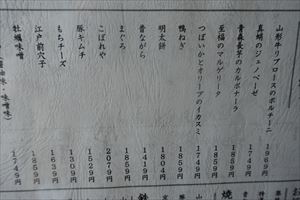 山形牛リブロースのポルチーニ 1969円
真蛸のジェノベーゼ 1749円
青森長芋のカルボナーラ 1859円
至福のマルゲリータ 1749円
つぶいかとオリーブのイカスミ 1749円
鴨ねぎ 1859円
明太餅 1804円
昔ながら 1419円
まぐろ 1859円
こぼれや 2079円
豚キムチ 1529円
もちチーズ 1309円
江戸前穴子 1639円
牡蠣味噌 1859円
1749円
味噌味
鉄
焼